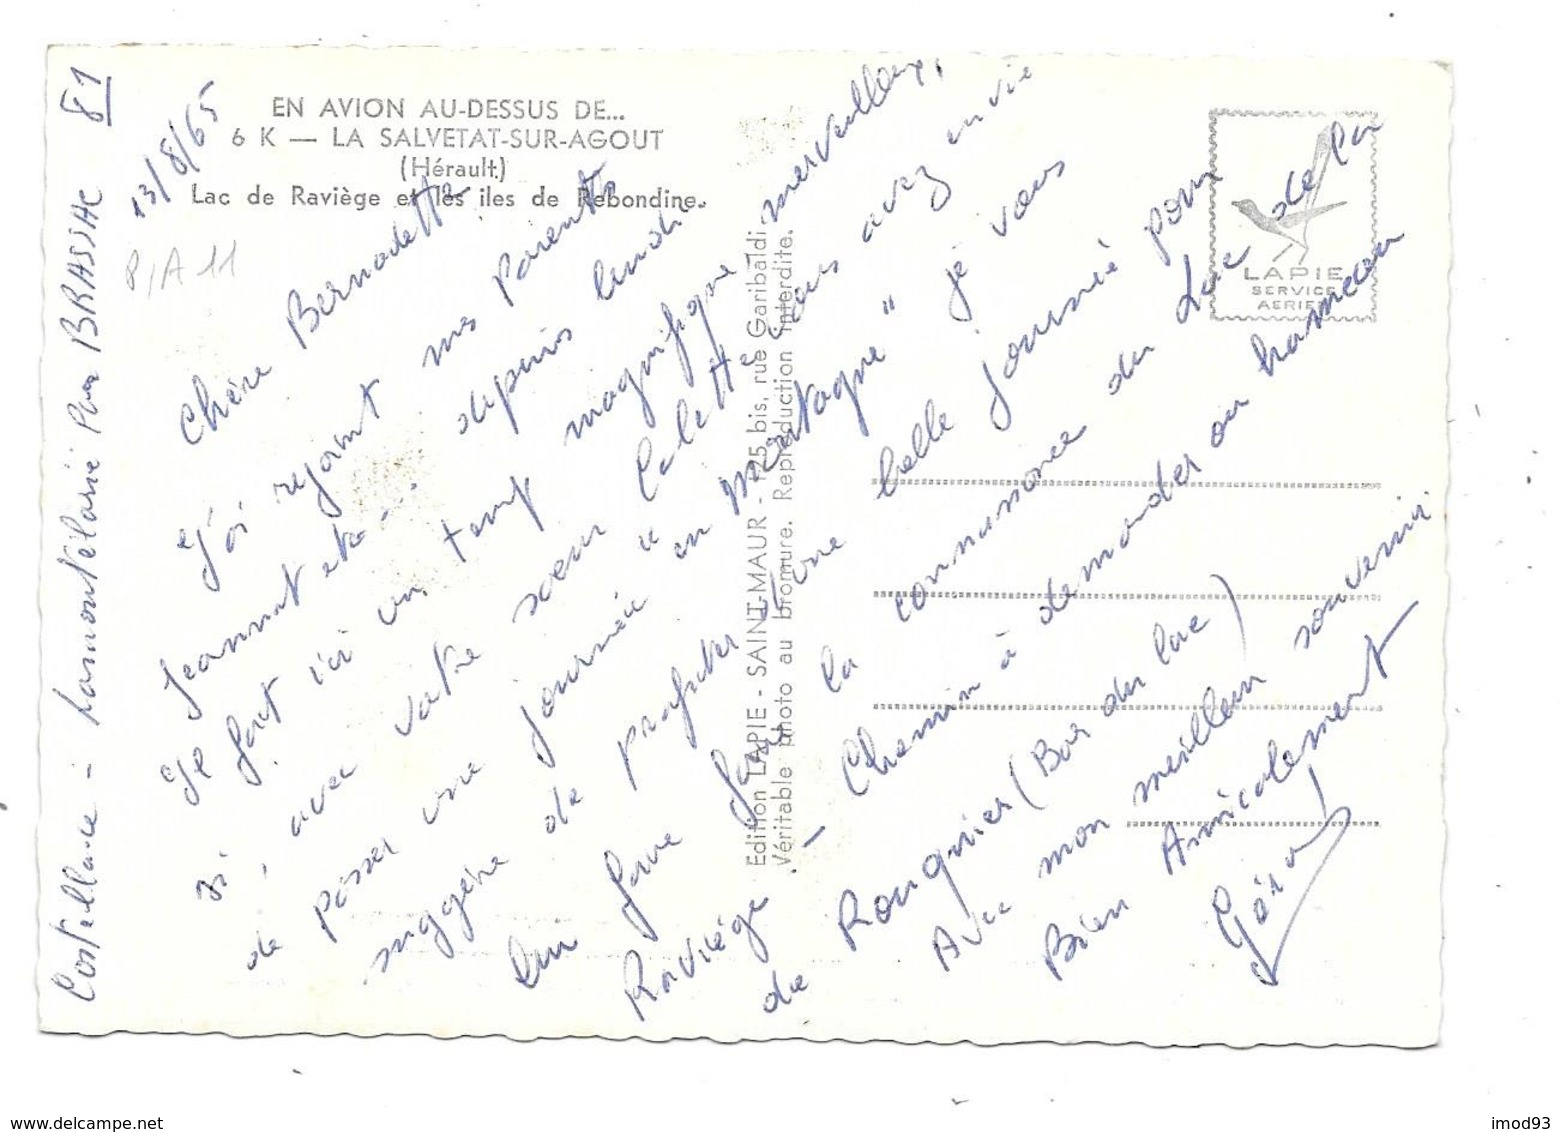 EN AVION AU-DESSUS DE...
6 K — LA SALVETAT-SUR-AGOUT
(Hérault)
Lac de Raviège et les iles de Rebondine.
LAPIE
SERVICE
AERIEN
Edition LAPIE - SAINT-MAUR - 115 bis, rue Garibaldi
Véritable photo au bromure. Reproduction interdite.
Castellare - Lamontélarié par BRASSAC 81
13/8/65
P/A 11
Chère Bernadette
J'ai rejoint mes Parents
Jeannot etc... depuis lundi
Il fait ici un temps magnifique, merveilleux,
si, avec votre soeur Colette vous avez envie
de passer une journée "en montagne" je vous
suggère de profiter d'une belle journée pour
lui faire faire la connaissance du Lac de la
Raviège - Chemin à demander au hameau
de Rouquier (Bar du lac)
Avec mon meilleur souvenir
Bien Amicalement
Gérard
delcampe.net
imod93